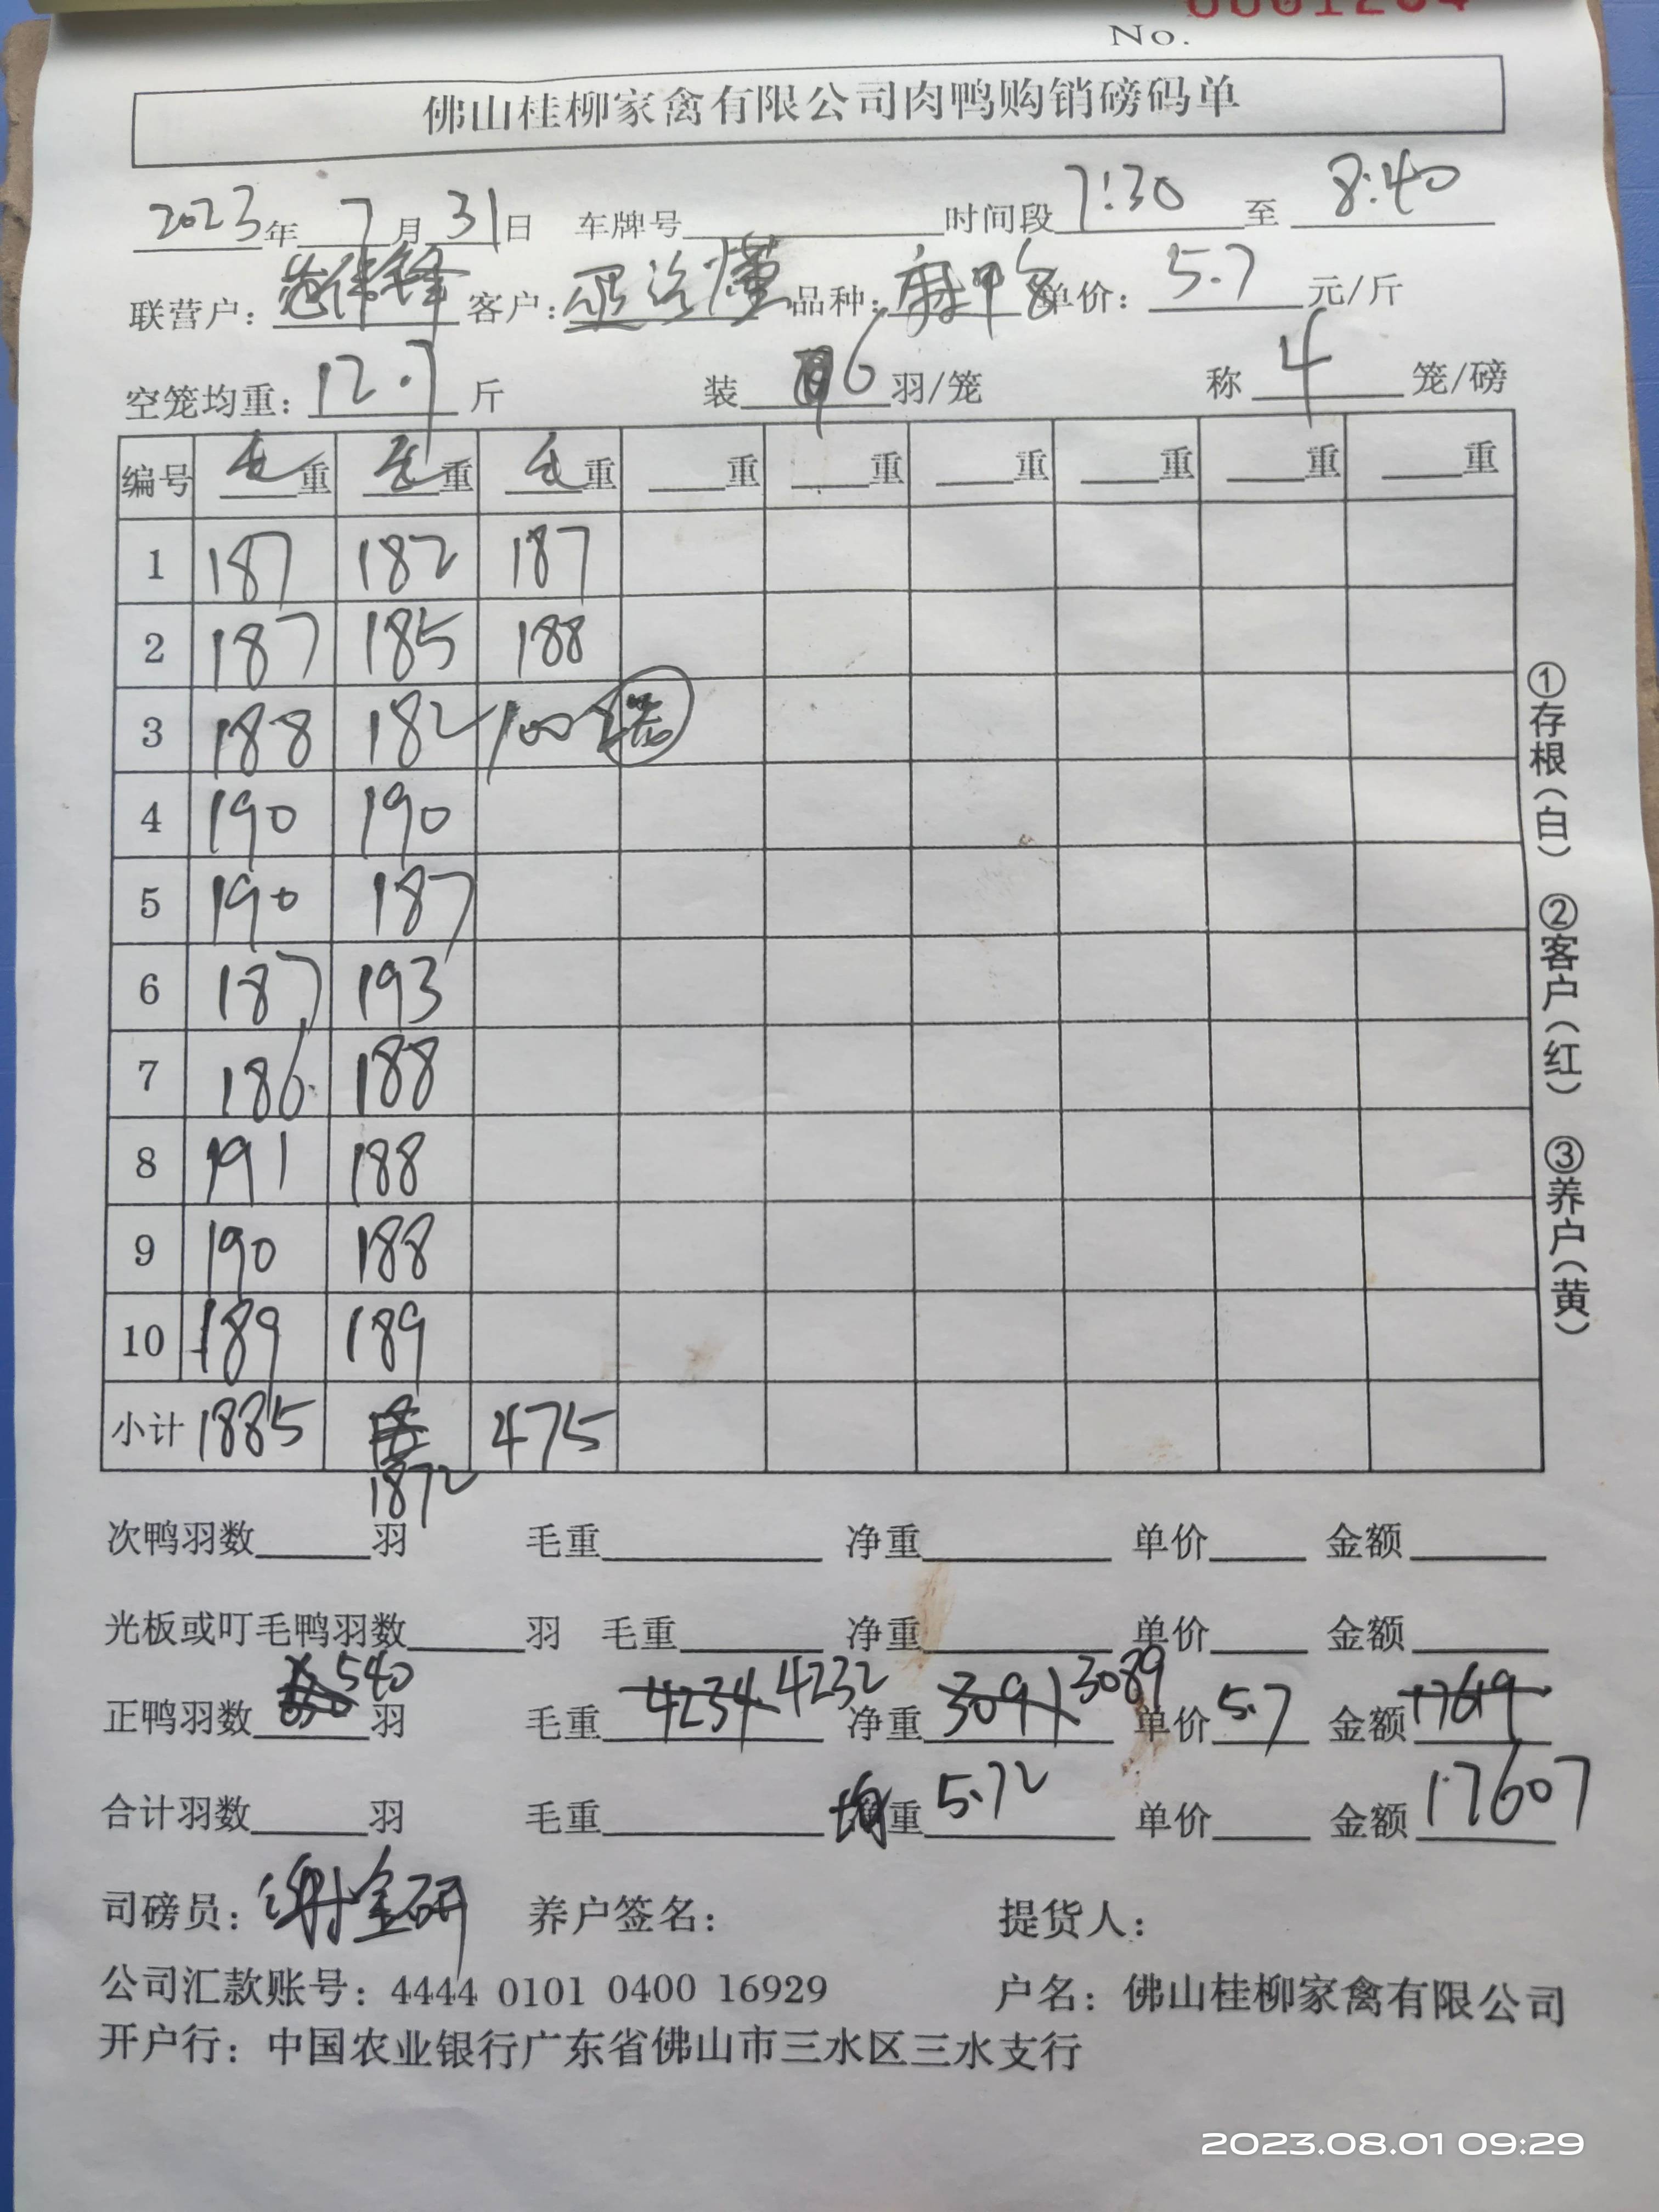 No.
佛山桂柳家禽有限公司肉鸭购销磅码单
2023年 7月31日 车牌号 时间段 7:30 至 8:40
联营户: 客户: 品种: 麻 单价: 5.7 元/斤
空笼均重: 12.7 斤 装 6 羽/笼 称 4 笼/磅
编号 毛重 毛重 毛重 重 重 重 重 重 重
1 187 182 187
2 187 185 188
3 188 182 100
4 190 190
5 190 187
6 187 193
7 186 188
8 191 188
9 190 188
10 189 189
小计 1885 1872 475
次鸭羽数 羽 毛重 净重 单价 金额
光板或叮毛鸭羽数 羽 毛重 净重 单价 金额
正鸭羽数 540 羽 毛重 4234 4232 净重 3091 3089 单价 5.7 金额 17619
合计羽数 羽 毛重 均重 5.72 单价 金额 17607
司磅员: 谢金研 养户签名: 提货人:
公司汇款账号: 4444 0101 0400 16929 户名: 佛山桂柳家禽有限公司
开户行: 中国农业银行广东省佛山市三水区三水支行
①存根(白) ②客户(红) ③养户(黄)
2023.08.01 09:29